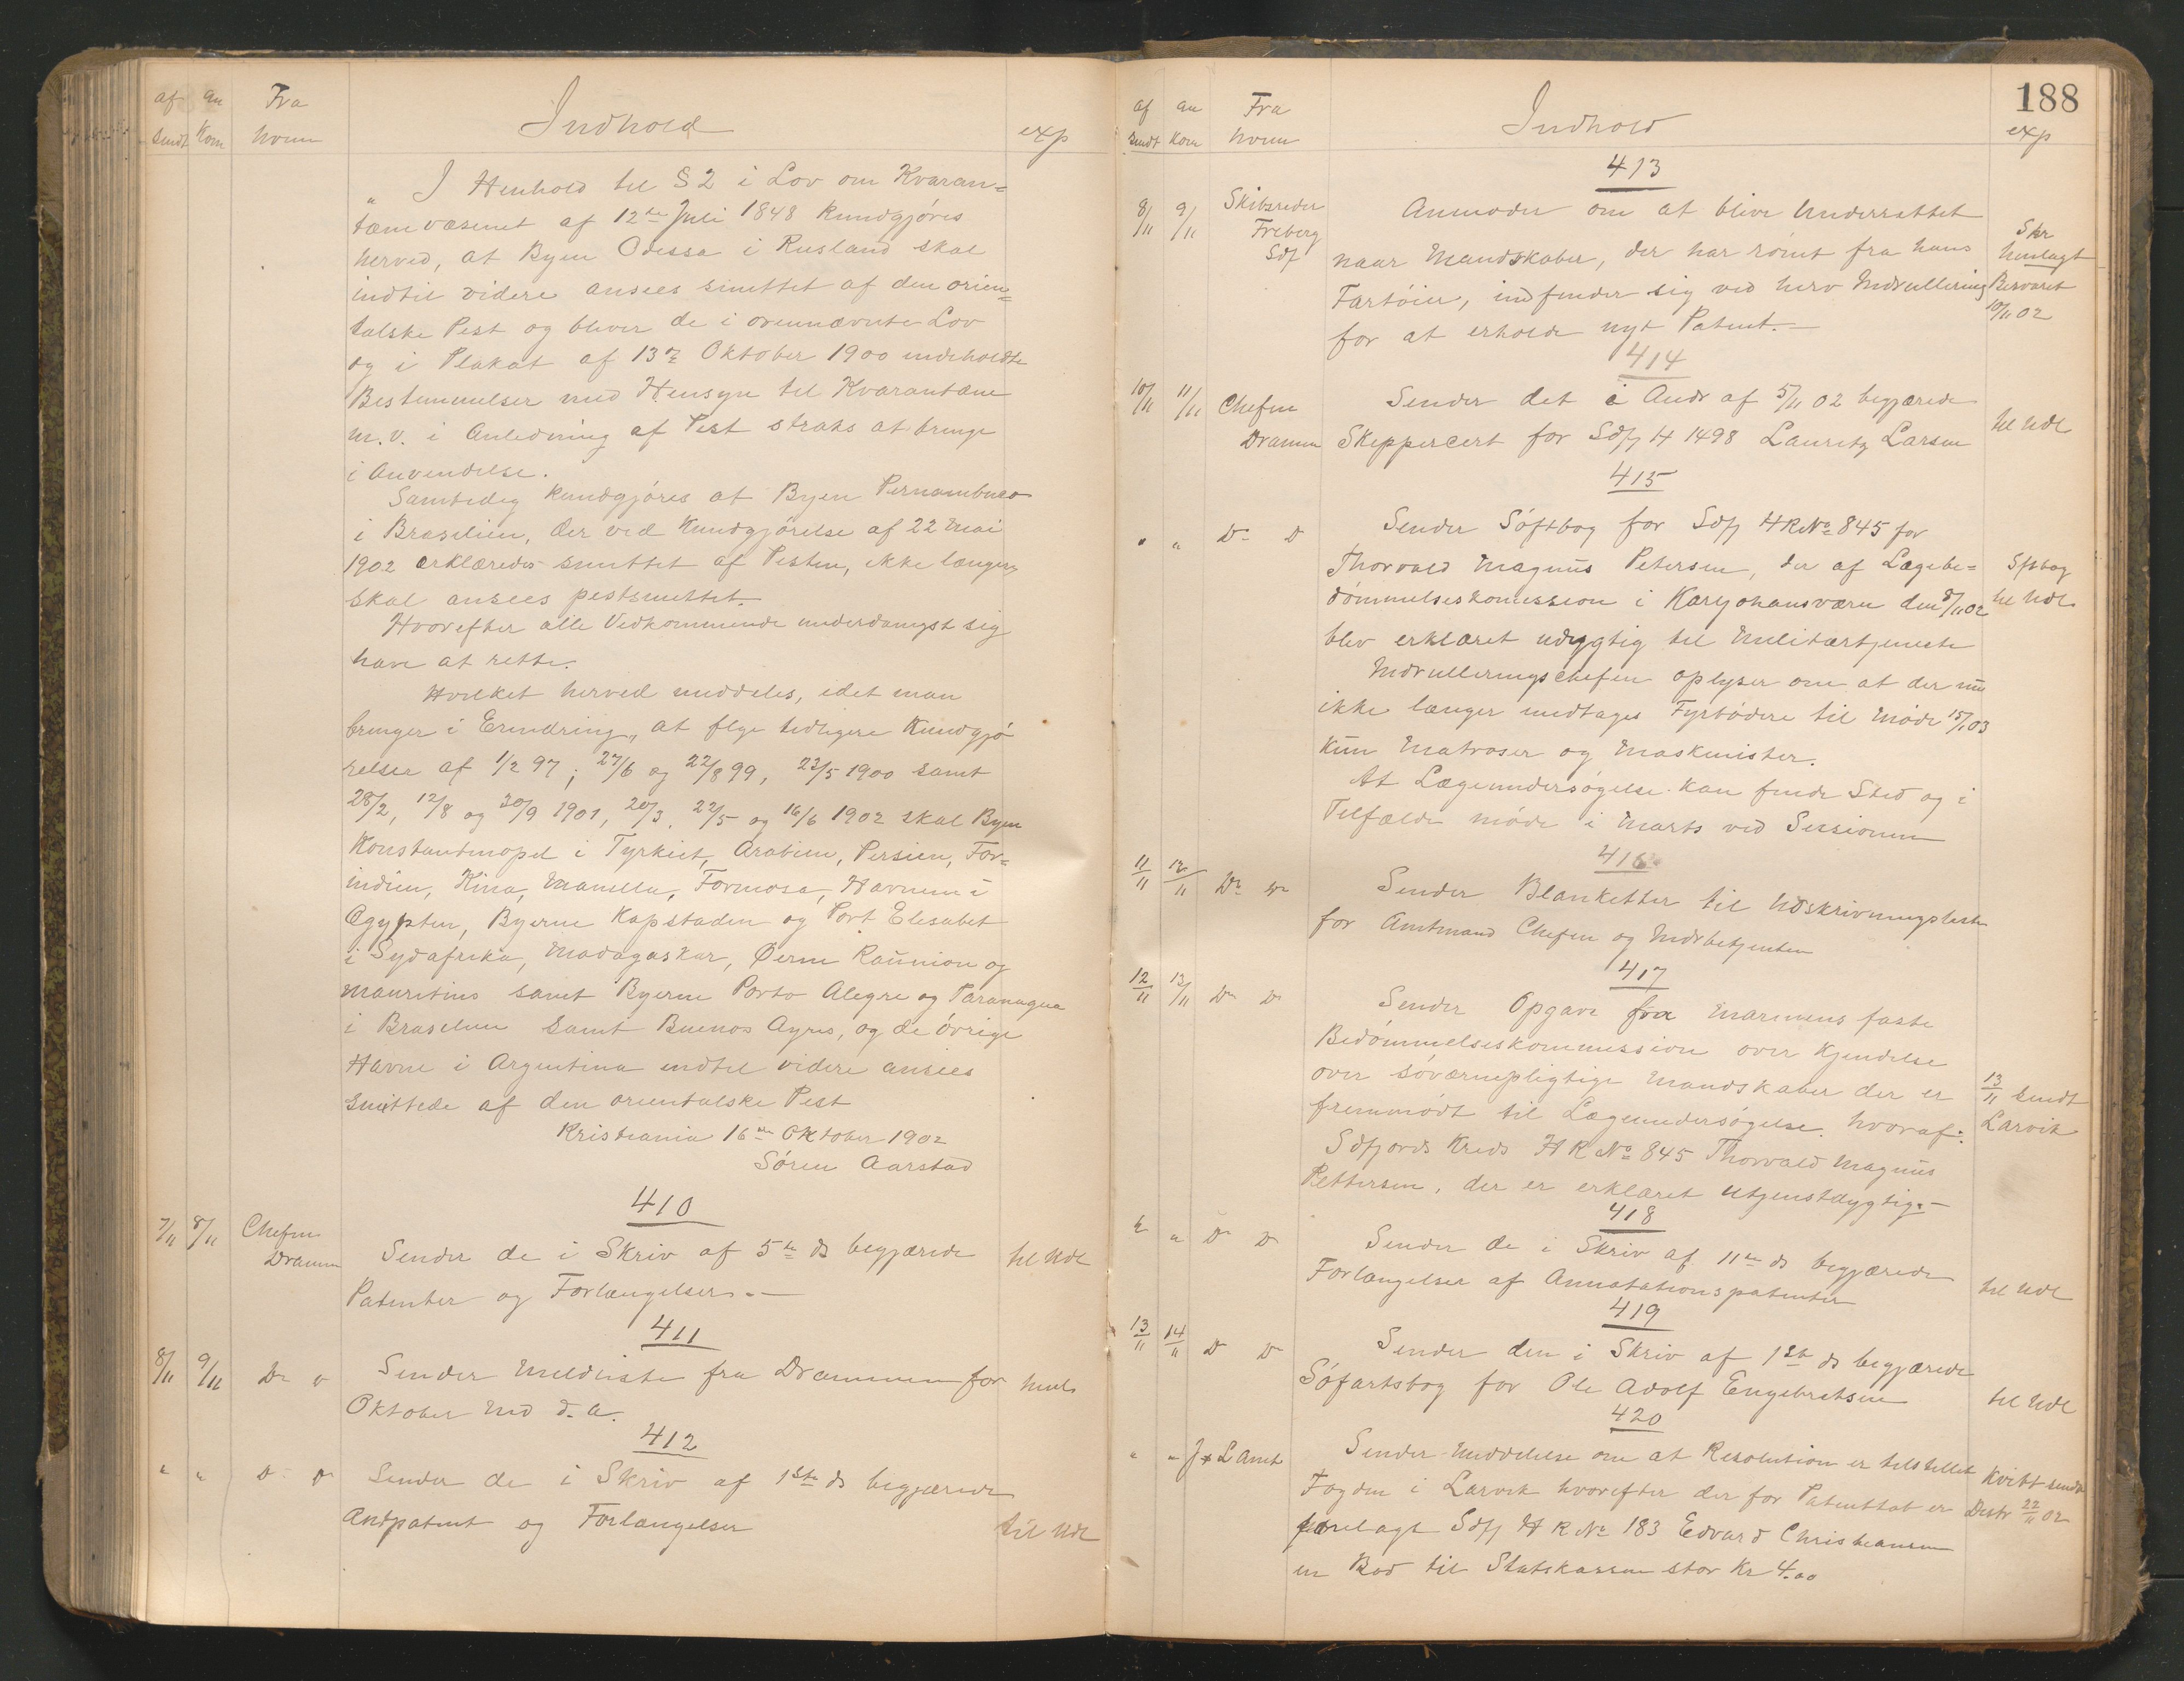 af an Fra Indhold exp
sendt kom hvem
" I Henhold til § 2 i Lov om Kvaran=
tænevæsenet af 12te Juli 1848 kundgjøres
herved, at Byen Odessa i Rusland skal
indtil videre ansees smittet af den orien=
talske Pest og bliver de i ovennævnte Lov
og i Plakat af 13de Oktober 1900 indeholdte
Bestemmelser med Hensyn til Kvarantæne
m.v. i Anledning af Pest straks at bringe
i Anvendelse.
Samtidig kundgjøres at Byen Pernambuco
i Brasilien, der ved Kundgjørelse af 22 Mai
1902 erklæredes smittet af Pesten, ikke længere
skal ansees pestsmittet.
Hvorefter alle Vedkommende underdanigst sig
have at rette.
Hvilket herved meddeles, idet man
bringer i Erindring, at flge tidligere Kundgjø
relser af 1/2 97; 27/6 og 22/8 99, 23/5 1900 samt
28/2, 12/8 og 30/9 1901, 20/3, 22/5 og 16/6 1902 skal Byen
Konstantinopel i Tyrkiet, Arabien, Persien, For=
indien, Kina, Manilla, Formosa, Havnene i
Ægypten, Byerne Kapstaden og Port Elisabet
i Sydafrika, Madagaskar, Øerne Raunion og
Mauritius samt Byerne Porto Alegre og Paranagua
i Brasilien samt Buenos Ayres, og de øvrige
Havne i Argentina indtil videre ansees
smittede af den orientalske Pest
Kristiania 16de Oktober 1902
Søren Aarstad
410
7/11 8/11 Chefen
Dramm Sender de i Skriv af 5te ds begjærede til Udl
Patenter og Forlængelser. —
411
8/11 9/11 Do o Sender Meldliste fra Drammen for henl
Oktober Md d.a.
412
" " D D Sender de i Skriv af 1ste ds begjærede
Antpatent og Forlængelser til Udl
188
af an Fra Indhold exp
sendt kom hvem
413
8/11 9/11 Skibsreder Anmoder om at blive underrettet Skr
Freberg naar Mandskaber, der har rømt fra hans henlagt
Sdf Fartøier, indfinder sig ved herv Indrullering Besvaret
for at erholde nyt Patent. — 10/11 02
414
10/11 11/11 Chefen Sender det i Andr af 5/11 02 begjærede
Dramm Skippercert for Sdfj H 1498 Lauritz Larsen til Udl
415
" " Do D Sender Søftbog for Sdfj HR No 845 for
Thorvald Magnus Petersen, der af Lægebe= Sftbog
dømmelseskomission i Karljohansværn den 8/11 02 til Udl
blev erklæret udygtig til Militærtjeneste
Indrulleringschefen oplyser om at der nu
ikke længer medtages Fyrbødere til møde 15/1 03
kun Matroser og Maskinister.
At Lægeundersøgelse kan finde Sted og i
Tilfælde møde i Marts ved Sessionen
416
11/11 12/11 Do Do Sender Blanketter til Udskrivningsliste
for Amtmand Chefen og Indrbetjenten
417
12/11 13/11 Do D Sender Opgave fra Marinens faste
Bedømmelseskommission over Kjendelse
over søværnepligtige Mandskaber der er 13/11 sendt
fremmødt til Lægeundersøgelse. hvoraf: Larvik
Sdfjords Kreds H R No 845 Thorvald Magnus
Pettersen, der er erklæret utjenstdygtig. —
418
" " D D Sender de i Skriv af 11te ds begjærede
Forlængelser af Annotationspatenter til Udl
419
13/11 14/11 D D Sender den i Skriv af 1ste ds begjærede
Søfartsbog for Ole Adolf Engebretsen til Udl
420
" " J & L Amt Sender Meddelelse om at Resolution er tilstillet Kvitt sendt
Fogden i Larvik hvorefter der for Patenttab er Distr 22/11 02
forelagt Sdfj H R No 183 Edvard Christiansen
en Bod til Statskassen stor Kr 4.00